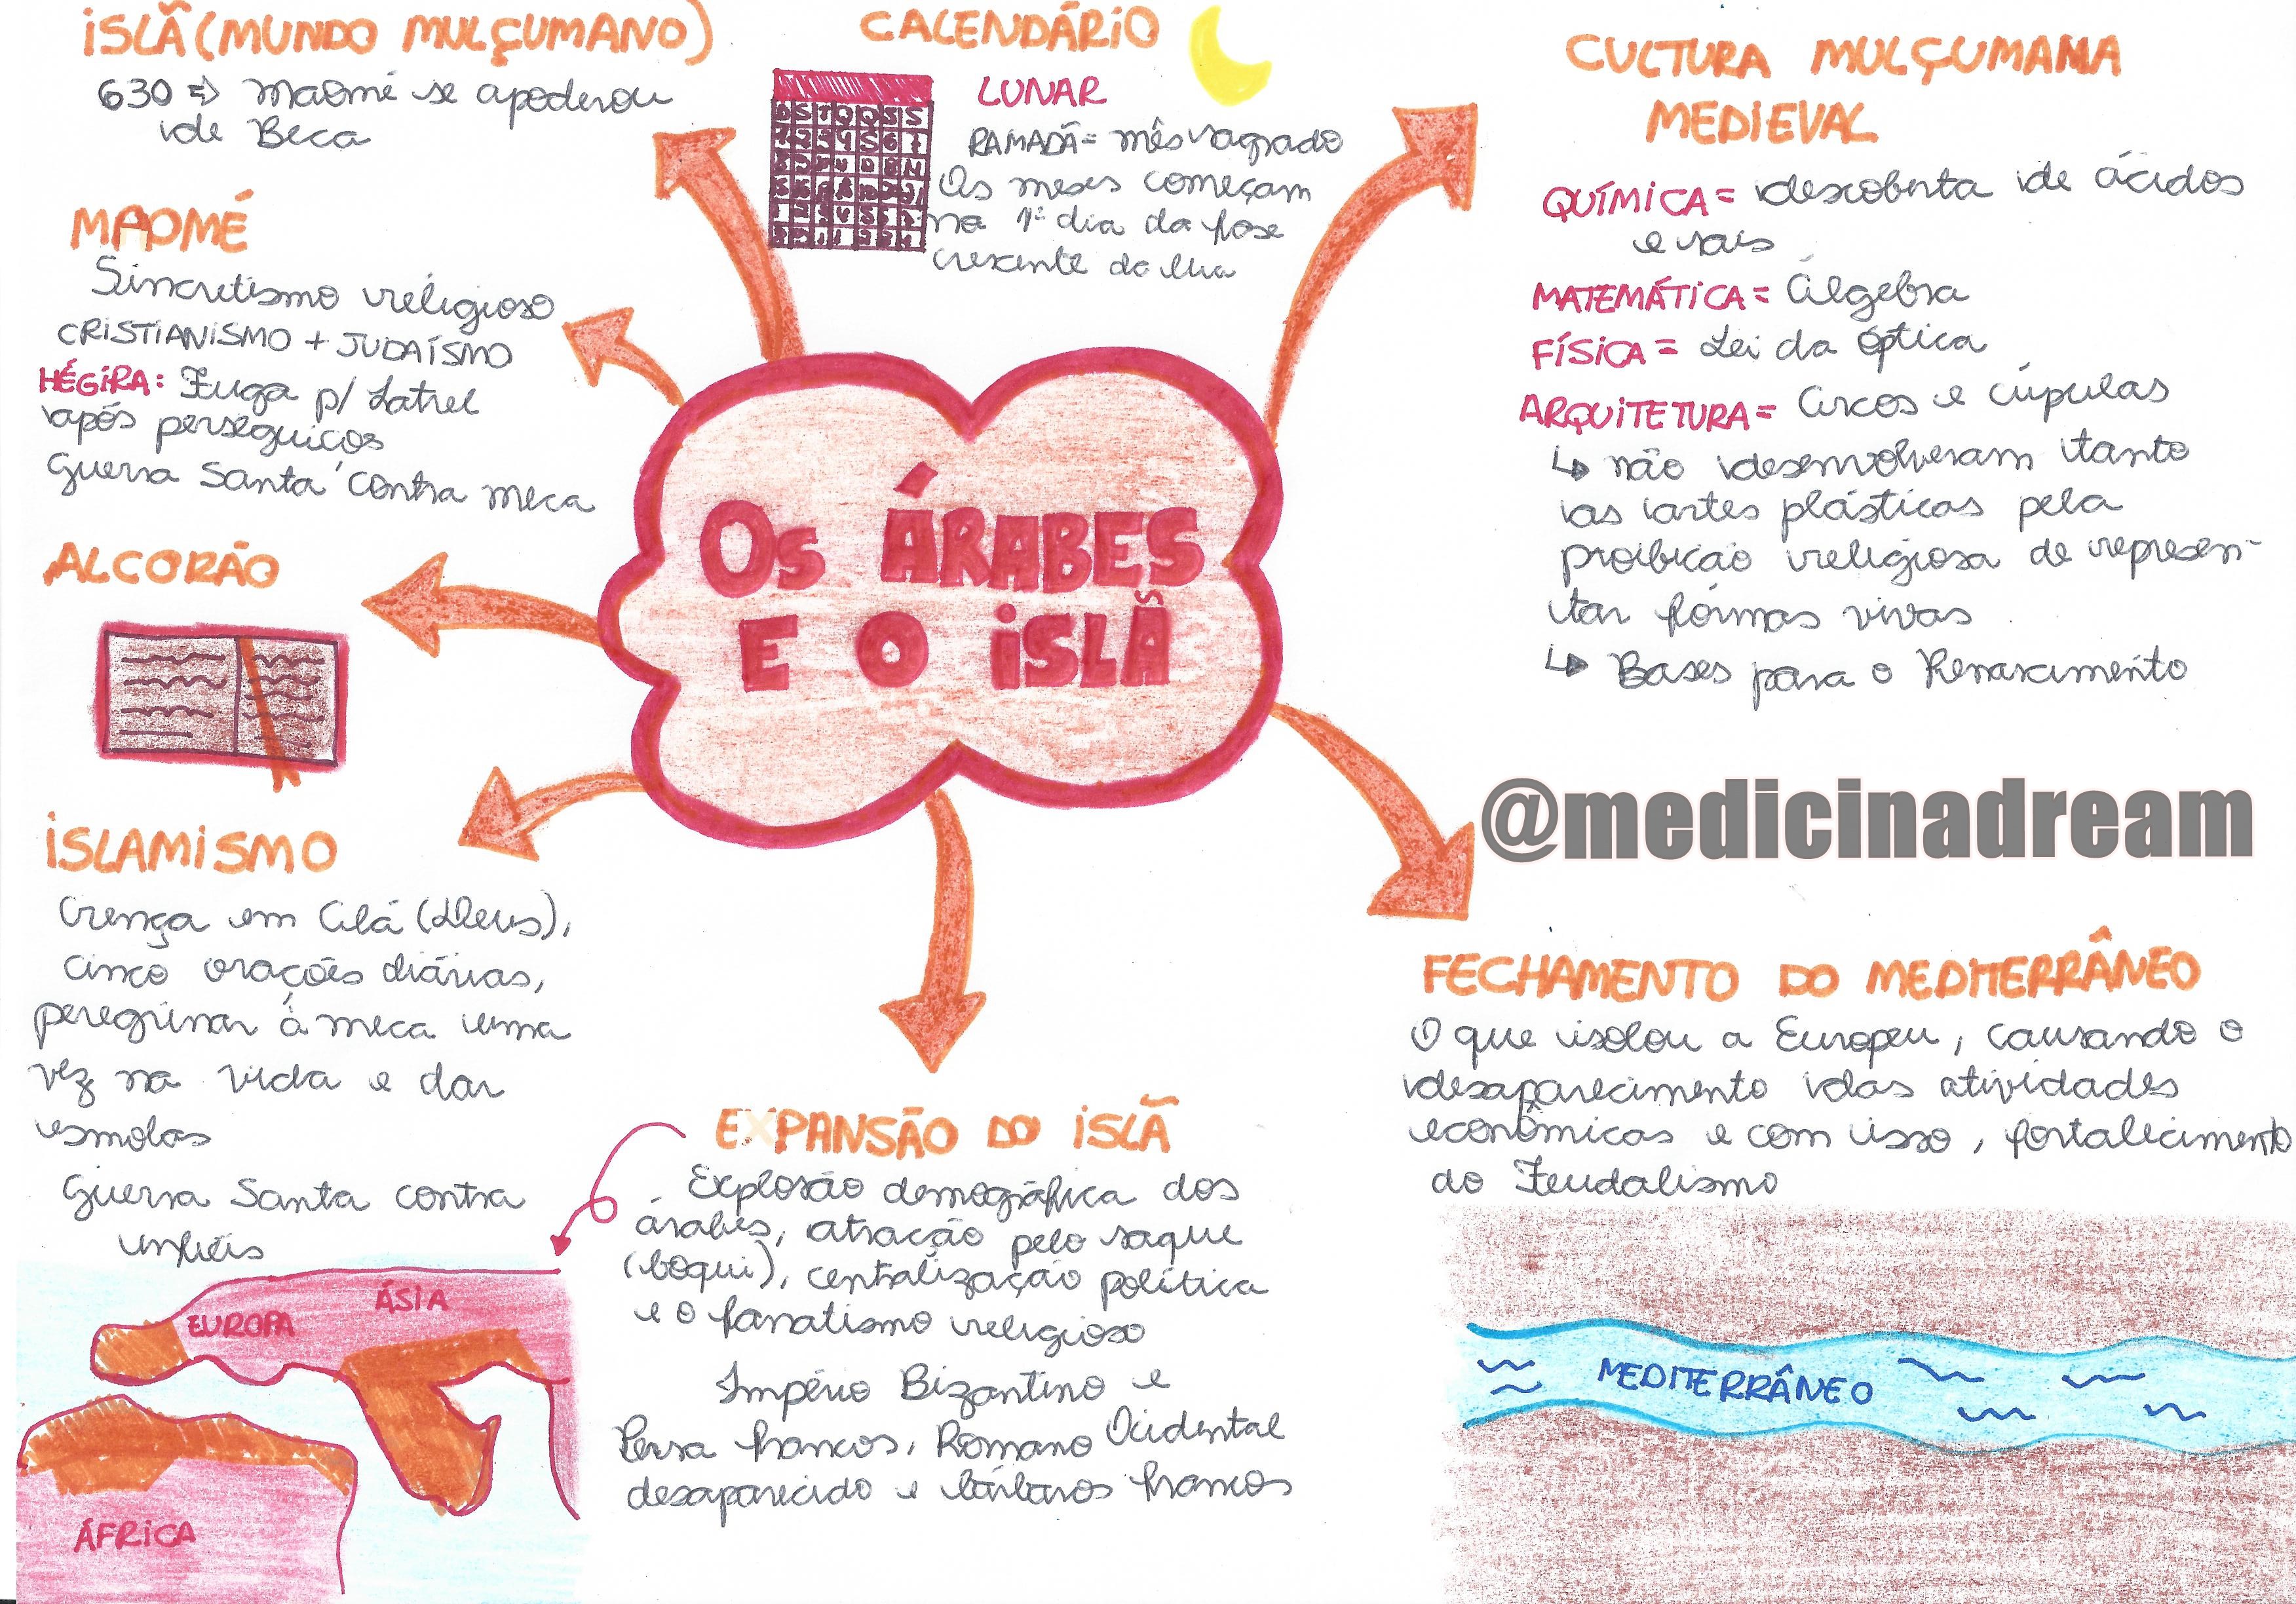 ISLÃ (MUNDO MULÇUMANO)
630 => Maomé se apoderou
de Beca
MAOMÉ
Sincretismo religioso
CRISTIANISMO + JUDAÍSMO
HÉGIRA: Fuga p/ Iatrel
após perseguicos
Guerra Santa contra meca
ALCORÃO
ISLAMISMO
Crença em Alá (Deus),
cinco orações diárias,
peregrinar á meca uma
vez na vida e dar
esmolas
Guerra Santa contra
infiéis
CALENDÁRIO
LUNAR
RAMADÃ = mês sagrado
Os meses começam
no 1º dia da fase
crescente da lua
D S T Q Q S S
OS ÁRABES
E O ISLÃ
CULTURA MULÇUMANA
MEDIEVAL
QUÍMICA = descoberta de ácidos
e sais
MATEMÁTICA = Álgebra
FÍSICA = Lei da óptica
ARQUITETURA = Arcos e cúpulas
↳ não desenvolveram tanto
as artes plásticas pela
proibicão religiosa de represen-
tar fórmas vivas
↳ Bases para o Renascimento
@medicinadream
FECHAMENTO DO MEDITERRÂNEO
O que isolou a Europeu, causando o
desaparecimento das atividades
econômicas e com isso, fortalecimento
do Feudalismo
MEDITERRÂNEO
EXPANSÃO DO ISLÃ
Explosão demográfica dos
árabes, atracão pelo saque
(boqui), centalização política
e o fanatismo religioso
Império Bizantino e
Persa francos, Romano Ocidental
desaparecido e bárbaros francos
EUROPA
ÁSIA
ÁFRICA